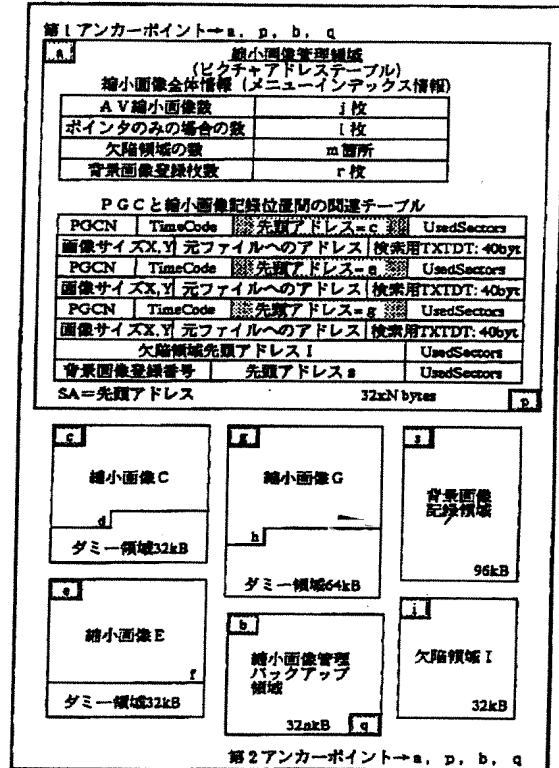 第1アンカーポイント→a, p, b, q
a
縮小画像管理領域
(ピクチャアドレステーブル)
縮小画像全体情報(メニューインデックス情報)
AV縮小画像数 j枚
ポインタのみの場合の数 l枚
欠陥領域の数 m箇所
背景画像登録枚数 r枚
PGCと縮小画像記録位置間の関連テーブル
PGCN TimeCode 先頭アドレス=c UsedSectors
画像サイズX,Y 元ファイルへのアドレス 検索用TXTDT: 40byt
PGCN TimeCode 先頭アドレス=e UsedSectors
画像サイズX,Y 元ファイルへのアドレス 検索用TXTDT: 40byt
PGCN TimeCode 先頭アドレス=g UsedSectors
画像サイズX,Y 元ファイルへのアドレス 検索用TXTDT: 40byt
欠陥領域先頭アドレス I UsedSectors
背景画像登録番号 先頭アドレス s UsedSectors
SA=先頭アドレス 32xN bytes
p
c
縮小画像C
d
ダミー領域32kB
g
縮小画像G
h
ダミー領域64kB
s
背景画像
記録領域
96kB
e
縮小画像E
f
ダミー領域32kB
b
縮小画像管理
バックアップ
領域
32nkB
q
i
欠陥領域I
32kB
第2アンカーポイント→a, p, b, q